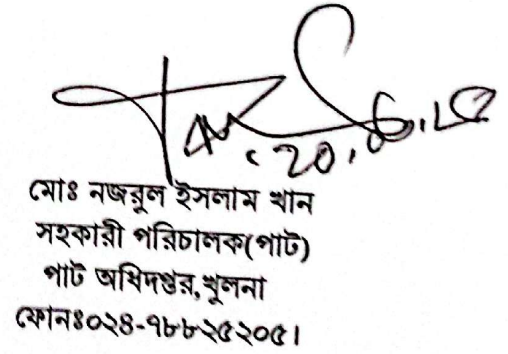 20.06.22
মোঃ নজরুল ইসলাম খান
সহকারী পরিচালক(পাট)
পাট অধিদপ্তর,খুলনা
ফোনঃ০২৪-৭৮৮২৫২০৫।